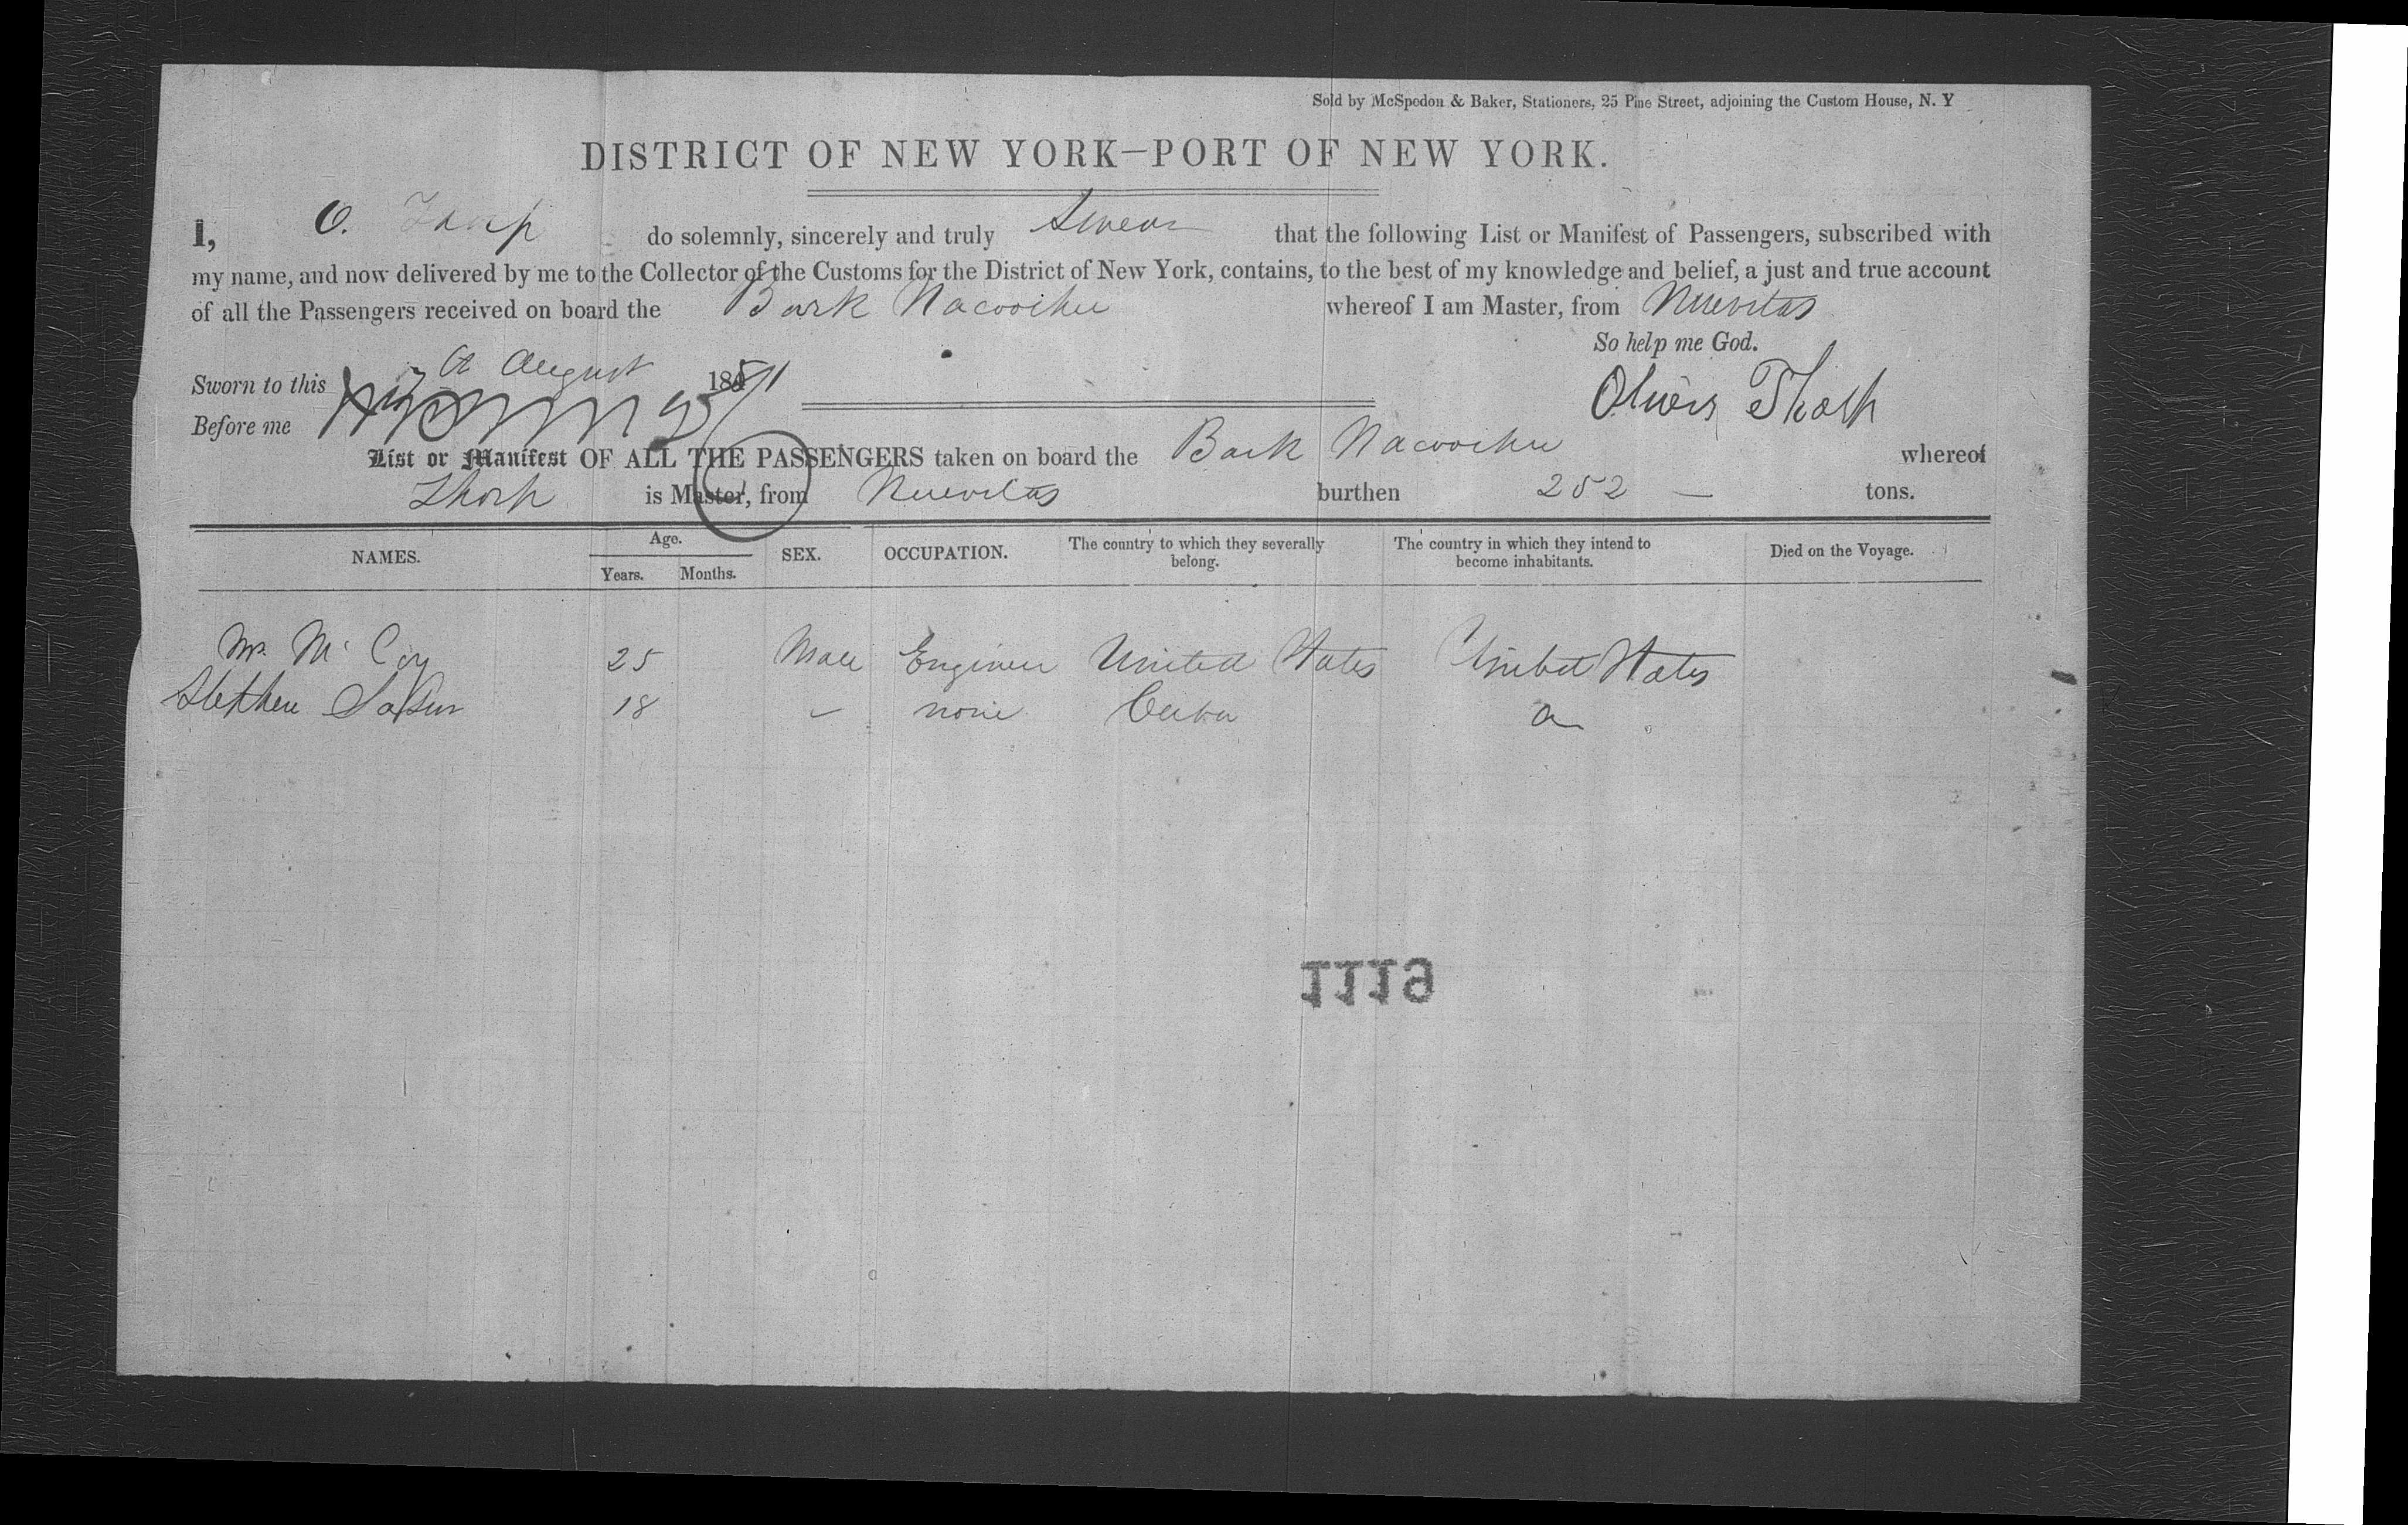 Sold by McSpedon & Baker, Stationers, 25 Pine Street, adjoining the Custom House, N. Y
DISTRICT OF NEW YORK—PORT OF NEW YORK.
I, O. Thorp do solemnly, sincerely and truly Swear that the following List or Manifest of Passengers, subscribed with
my name, and now delivered by me to the Collector of the Customs for the District of New York, contains, to the best of my knowledge and belief, a just and true account
of all the Passengers received on board the Bark Nacoochee whereof I am Master, from Nuevitas
So help me God.
Sworn to this 7th August 1851
Oliver Thorp
Before me
List or Manifest OF ALL THE PASSENGERS taken on board the Bark Nacoochee whereof
Thorp is Master, from Nuevitas burthen 252 — tons.
NAMES. Age. Years. Months. SEX. OCCUPATION. The country to which they severally belong. The country in which they intend to become inhabitants. Died on the Voyage.
Mr. Mc Coy 25 Male Engineer United States United States
Stephen 18 none Cuba
1119